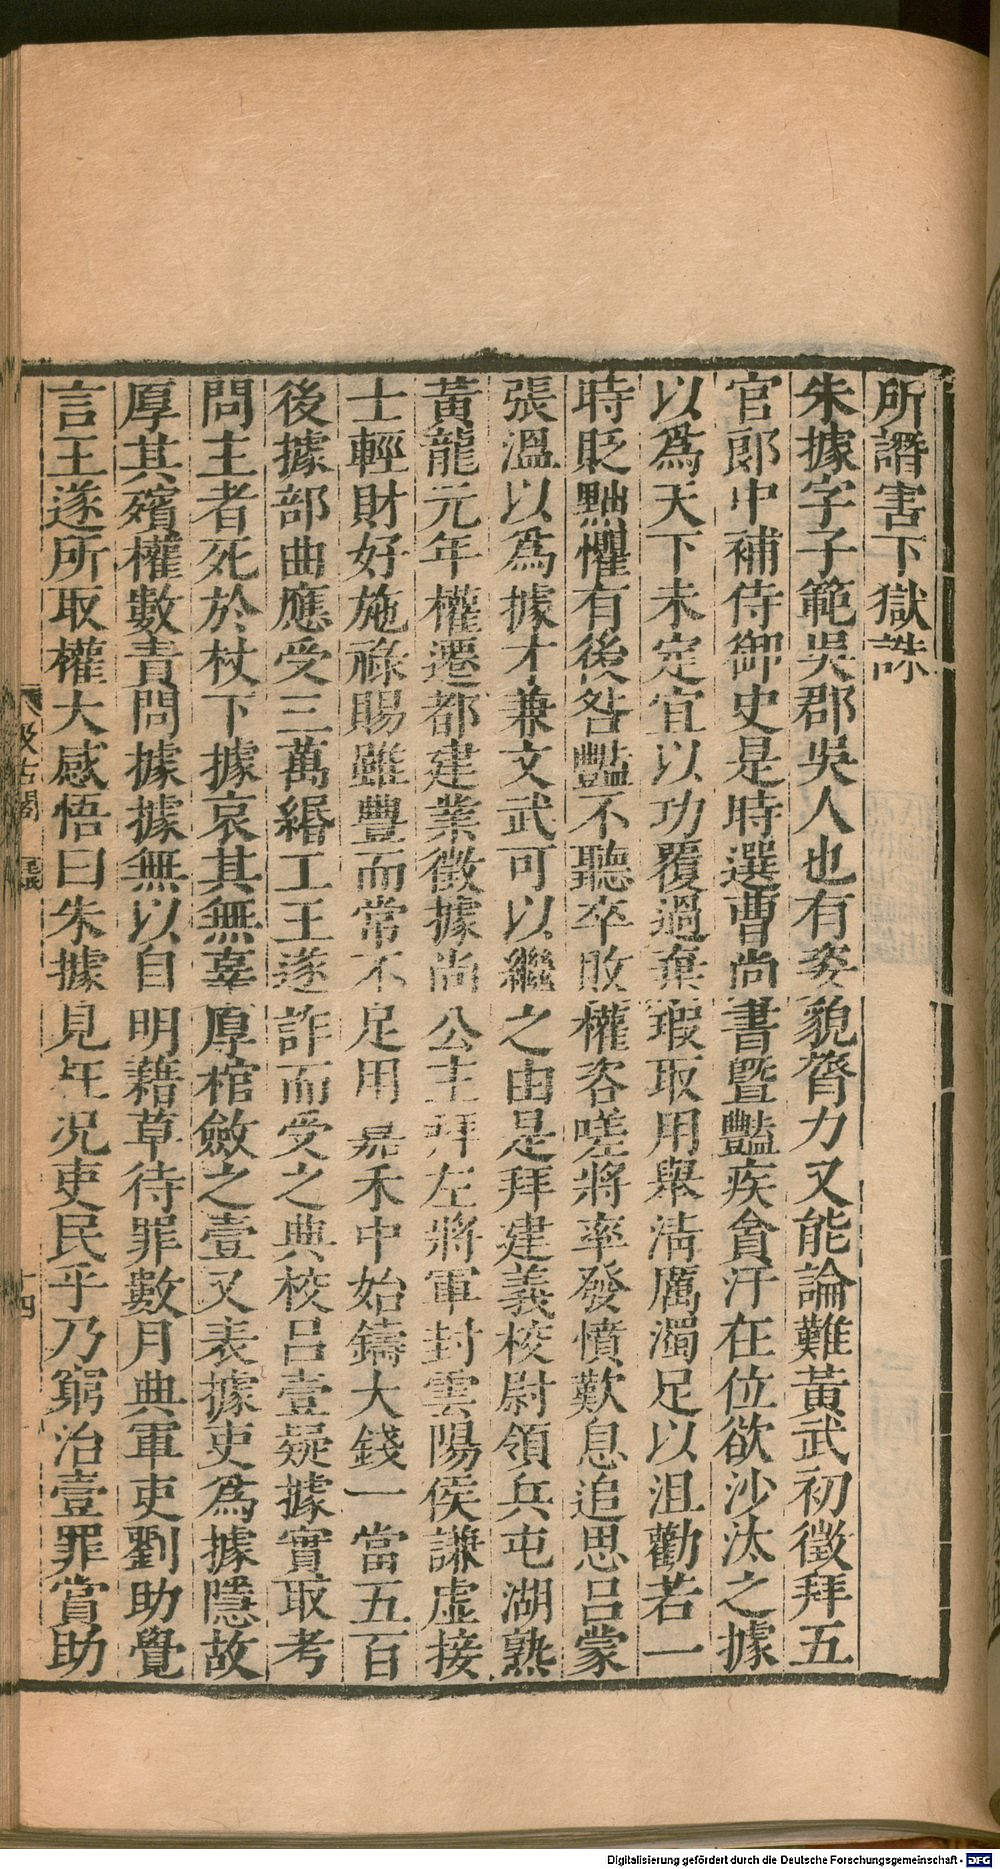 所譖害下獄誅
朱據字子範吳郡吳人也有姿貌膂力又能論難黃武初徵拜五
官郎中補侍御史是時選曹尚書暨豔疾貪汙在位欲沙汰之據
以為天下未定宜以功覆過棄瑕取用舉淸厲濁足以沮勸若一
時貶黜懼有後咎豔不聽卒敗權咨嗟將率發憤歎息追思呂蒙
張溫以為據才兼文武可以繼之由是拜建義校尉領兵屯湖熟
黃龍元年權遷都建業徵據尚公主拜左將軍封雲陽侯謙虛接
士輕財好施祿賜雖豐而常不足用嘉禾中始鑄大錢一當五百
後據部曲應受三萬緡工王遂詐而受之典校呂壹疑據實取考
問主者死於杖下據哀其無辜厚棺斂之壹又表據吏為據隱故
厚其殯權數責問據據無以自明藉草待罪數月典軍吏劉助覺
言王遂所取權大感悟曰朱據見枉況吏民乎乃窮治壹罪賞助
汲古閣
十四
Digitalisierung gefördert durch die Deutsche Forschungsgemeinschaft - DFG